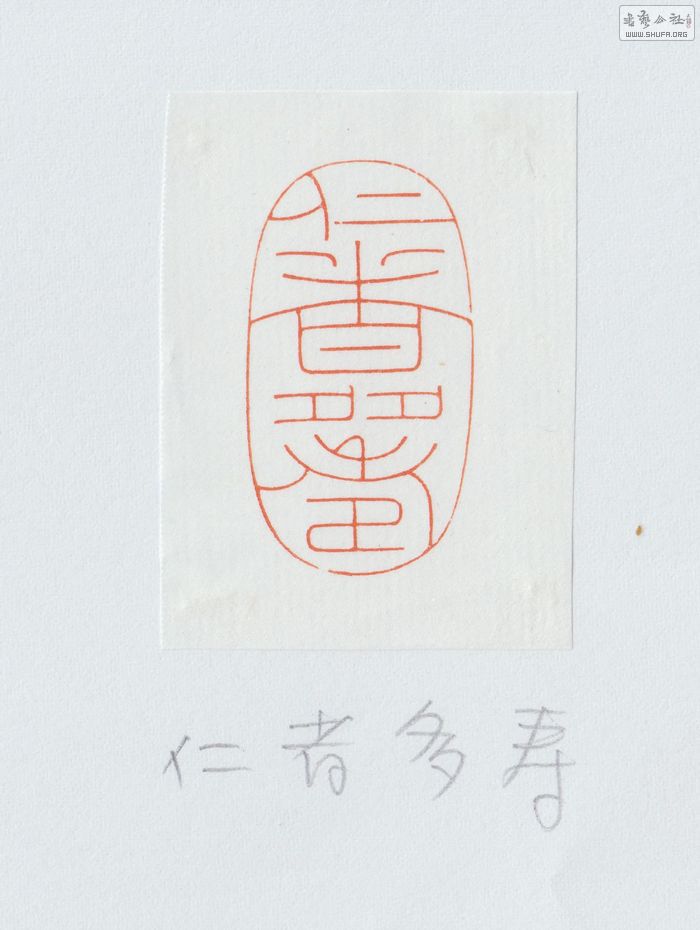 书艺公社
WWW.SHUFA.ORG
仁者多寿
仁者多寿